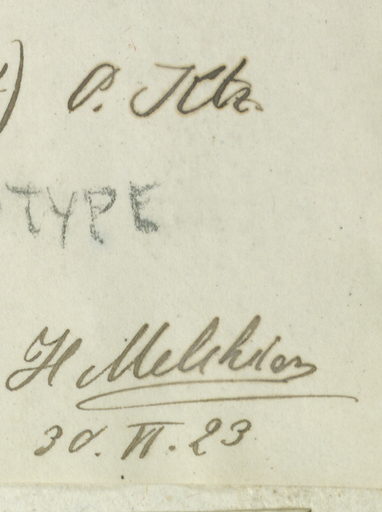 ) O. Ktz.
TYPE
H Melchior
30. VI. 23